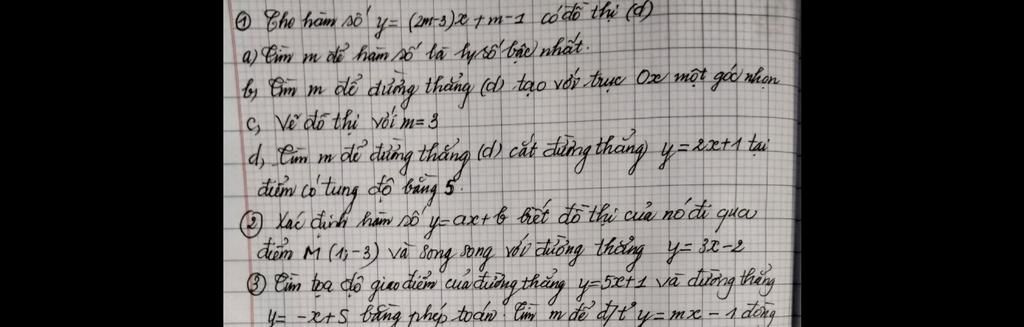 ① Cho hàm số y = (2m-3)x + m-1 có đồ thị (d)
a) Tìm m để hàm số là hs số bậc nhất.
b, Tìm m để đường thẳng (d) tạo với trục Ox một góc nhọn
c, Vẽ đồ thị với m=3
d, Tìm m để đường thẳng (d) cắt đường thẳng y=2x+1 tại
điểm có tung độ bằng 5.
② Xác định hàm số y=ax+b biết đồ thị của nó đi qua
điểm M (1;-3) và song song với đường thẳng y=3x-2
③ Tìm tọa độ giao điểm của đường thẳng y=5x+1 và đường thẳng
y= -x+5 bằng phép toán. Tìm m để đ/t² y=mx-1 đồng